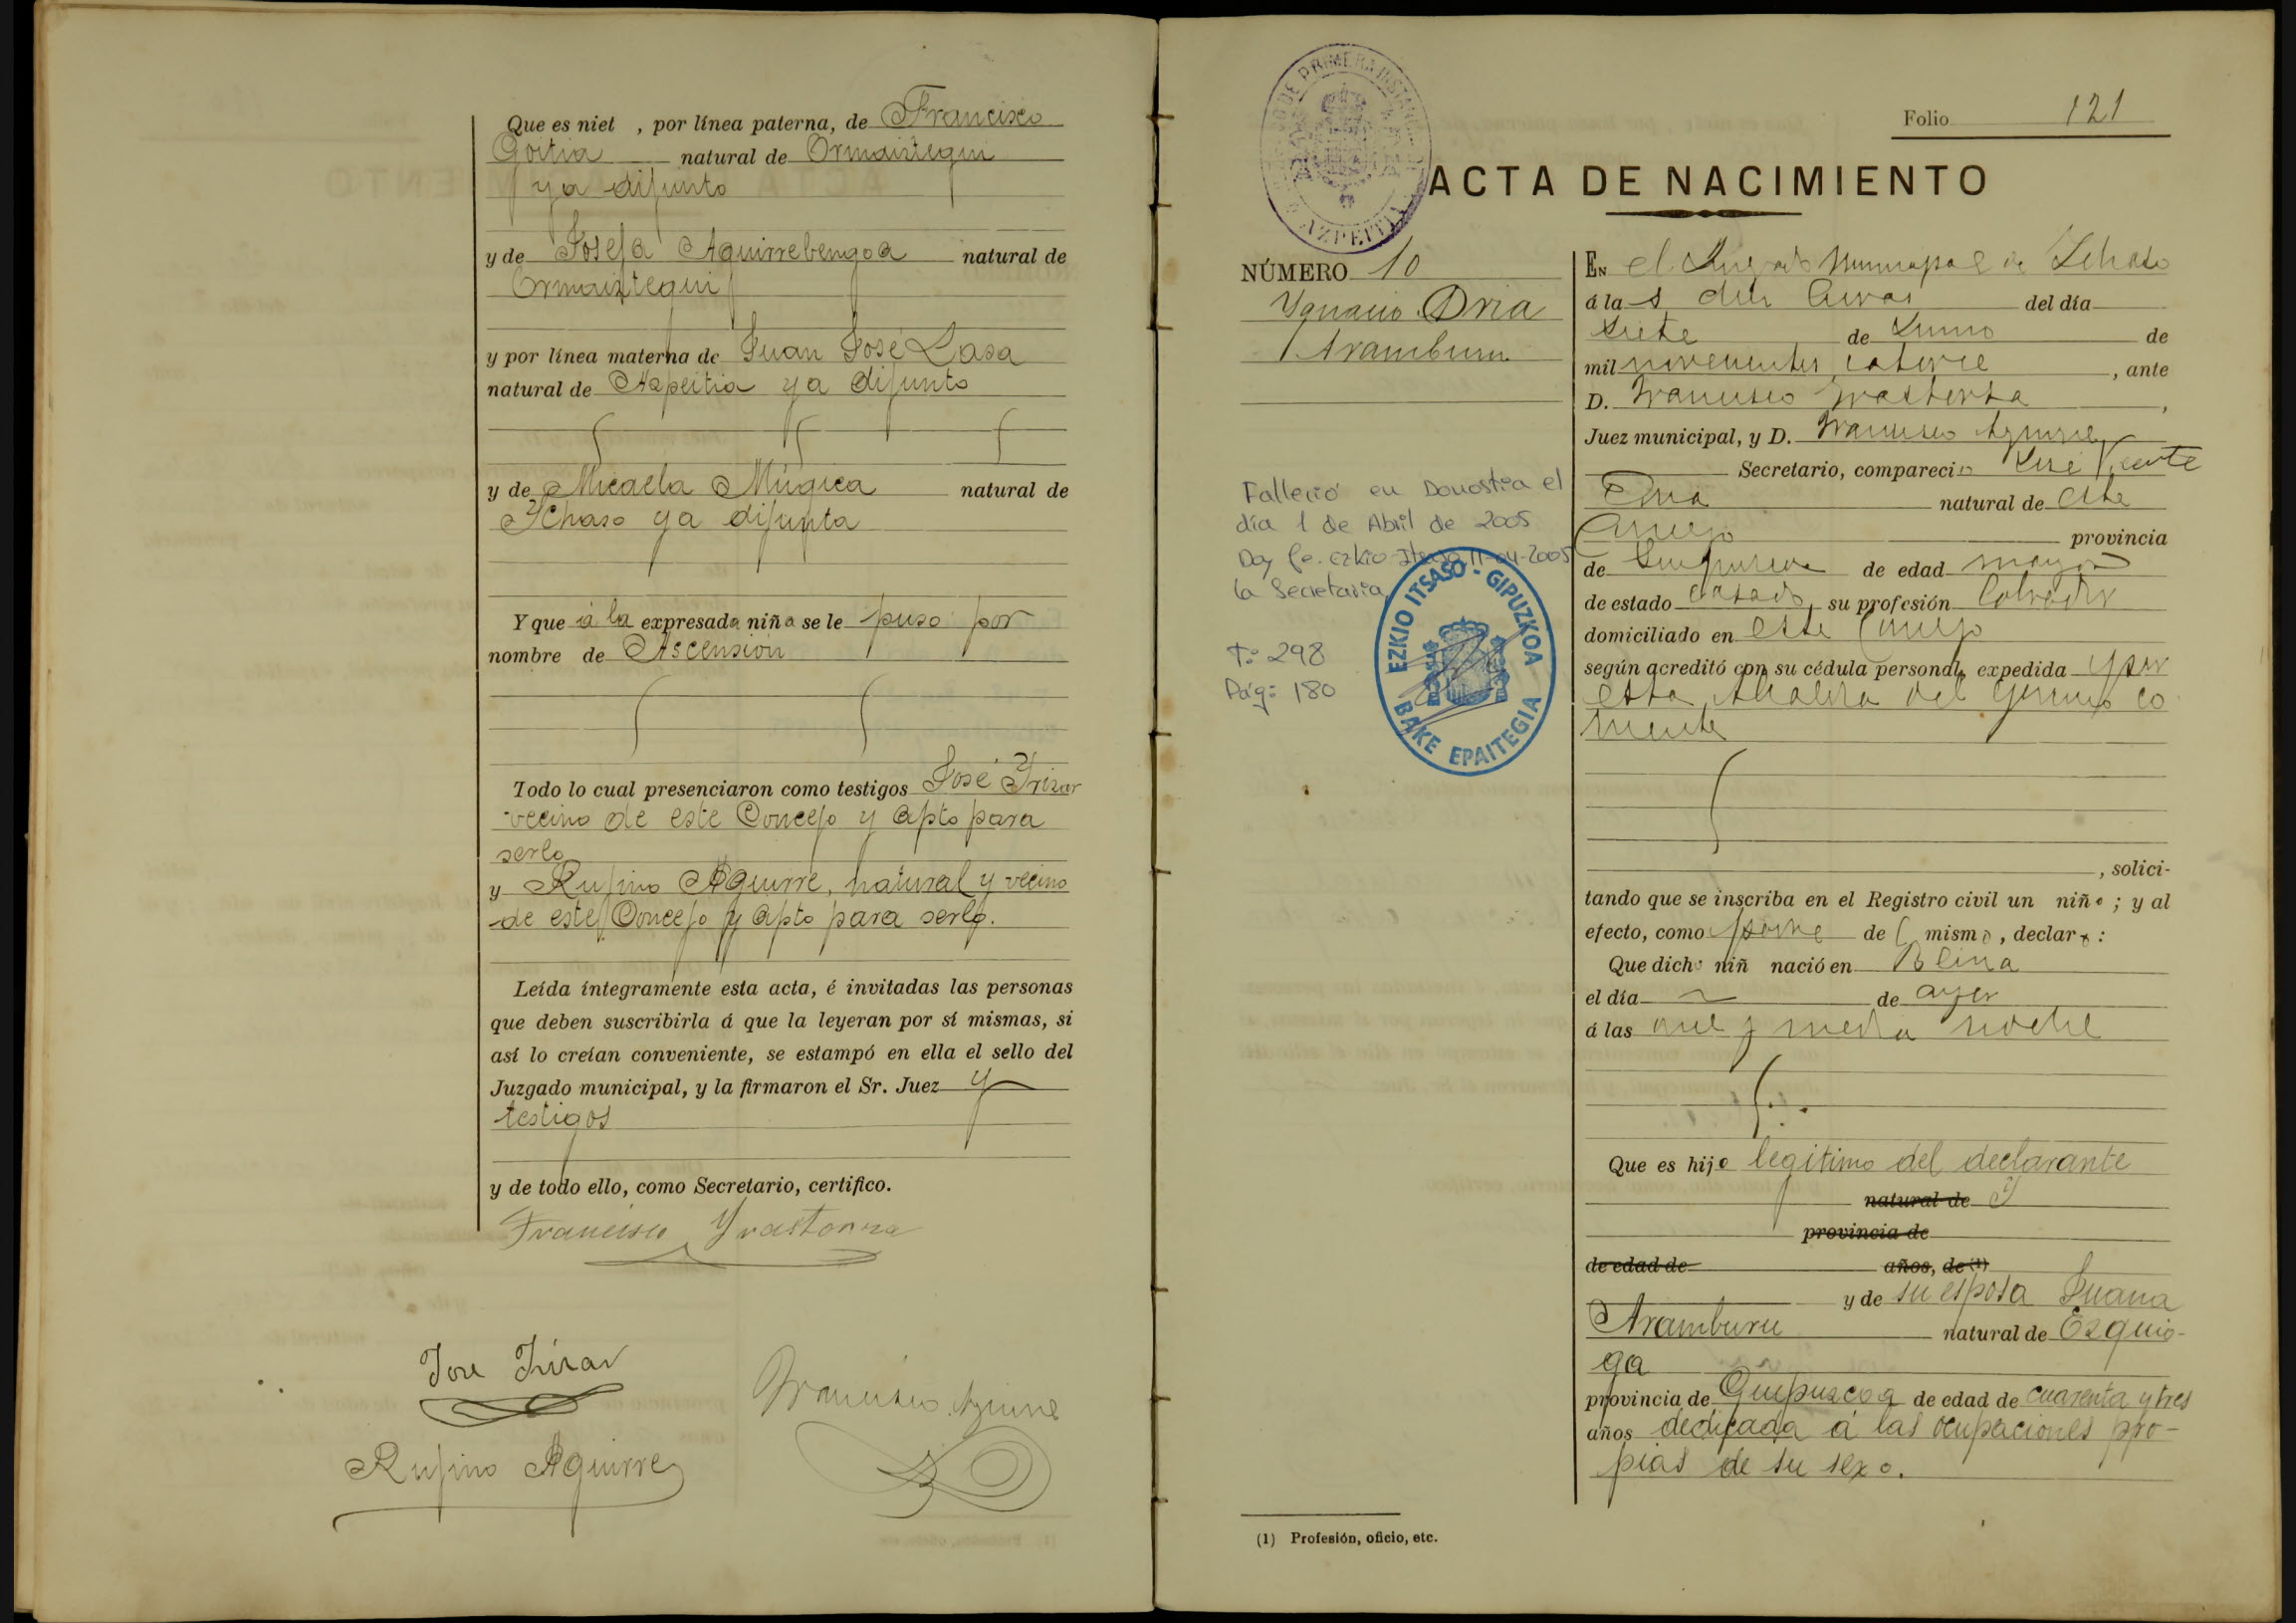 Que es niet , por línea paterna, de Francisco
Goitia natural de Ormaiztegui
ya difunto
y de Josefa Aguirrebengoa natural de
Ormaiztegui
y por línea materna de Juan José Lasa
natural de Azpeitia ya difunto
y de Micaela Múgica natural de
Ychaso ya difunta
Y que á la expresada niña se le puso por
nombre de Ascensión
Todo lo cual presenciaron como testigos José Yrizar
vecino de este Concejo y apto para
serlo
y Rufino Aguirre, natural y vecino
de este Concejo y apto para serlo.
Leída íntegramente esta acta, é invitadas las personas
que deben suscribirla á que la leyeran por sí mismas, si
así lo creían conveniente, se estampó en ella el sello del
Juzgado municipal, y la firmaron el Sr. Juez y
testigos
y de todo ello, como Secretario, certifico.
Francisco Yrastorza
José Yrizar
Francisco Aguirre
Rufino Aguirre
DE PRIMERA INSTANCIA
AZPEITIA
Folio 121
ACTA DE NACIMIENTO
NÚMERO 10
Ygnacio Oria
Aramburu
Falleció en Donostia el
día 1 de Abril de 2005
Doy fe. Ezkio-Itsaso 11-04-2005
la Secretaria
Tº: 298
Pág: 180
EZKIO ITSASO - GIPUZKOA
BAKE EPAITEGIA
EN el Juzgado Municipal de Ichaso
á las diez horas del día
siete de Junio de
mil novecientos catorce, ante
D. Francisco Yrastorza,
Juez municipal, y D. Francisco Aguirre,
Secretario, compareció José Vicente
Oria natural de este
Concejo provincia
de Guipuzcoa de edad mayor
de estado casado, su profesión labrador
domiciliado en este Concejo
según acreditó con su cédula personal, expedida por
esta Alcaldia del
, solici-
tando que se inscriba en el Registro civil un niño; y al
efecto, como padre del mismo, declaró:
Que dicho niñ nació en
el día de ayer
á las once y media noche
Que es hijo legítimo del declarante
natural de y
provincia de
de edad de años, de (1)
y de su esposa Juana
Aramburu natural de Ezquio-
ga
provincia de Guipuzcoa de edad de cuarenta y tres
años dedicada á las ocupaciones pro-
pias de su sexo.
(1) Profesión, oficio, etc.